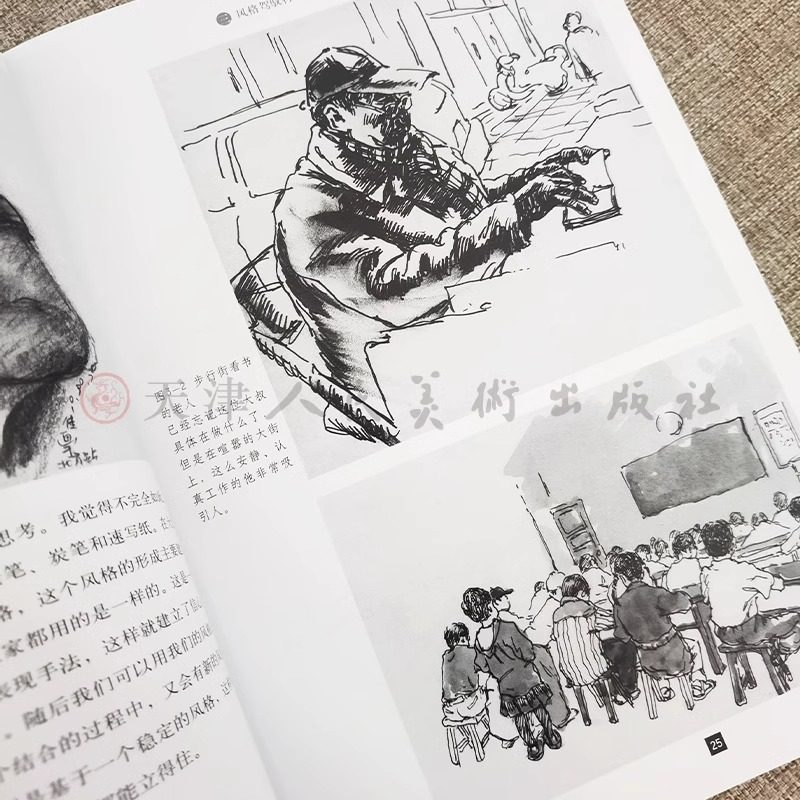 风格
2 步行街看书
的老人
已经忘记这位大叔
具体在做什么了，
但是在喧嚣的大街
上，这么安静，认
真工作的他非常吸
引人。
天津人民美術出版社
思考。我觉得不完全
笔、炭笔和速写纸。在
格，这个风格的形成主要
家都用的是一样的。这是
表现手法，这样就建立了
。随后我们可以用我们的风格
个结合的过程中，又会有新的
是基于一个稳定的风格，这
能立得住。
25